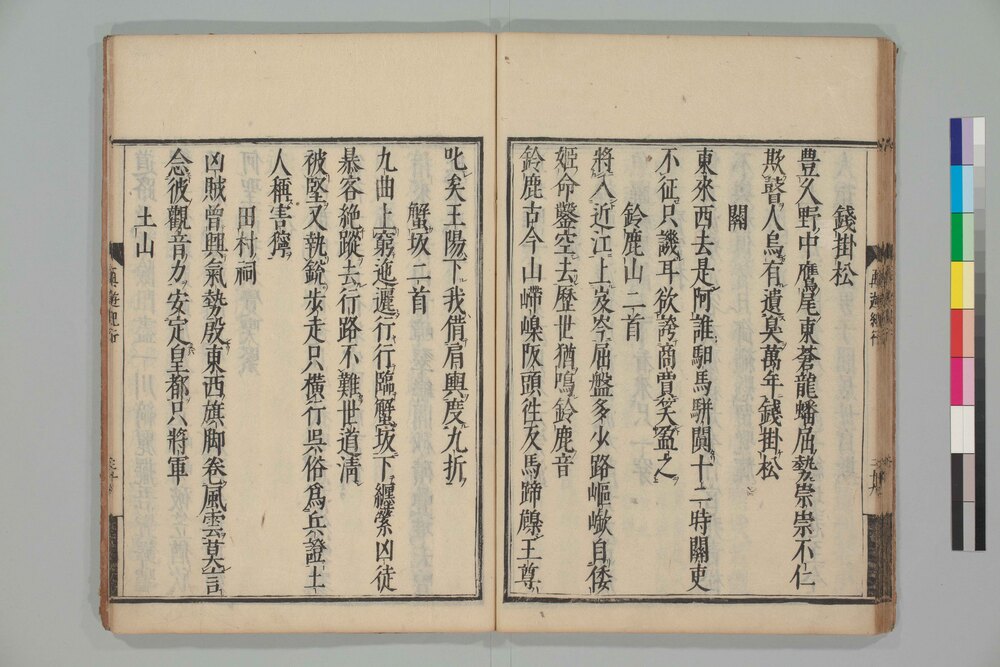 錢掛松
豊久野中鷹尾東蒼龍蟠屈勢崇崇不仁
欺瞽人烏有遺臭萬年錢掛松
關
東來西去是阿誰馹馬駢闐十二時關吏
不征只譏耳欲誇商賈笑盈之
鈴鹿山二首
將入近江上岌岑屈盤多少路嶇嶔自倭
姬命鑿空去歷世猶鳴鈴鹿音
鈴鹿古今山嶂㠔阪頭徃反馬蹄𩦺王尊
叱矣王陽下我借肩輿度九折
蟹坂二首
九曲上窮迤邐行行臨蟹坂下纏縈凶徒
暴客絶蹤去行路不難世道清
被堅又執銳步走只橫行呉俗爲兵證土
人稱害儜
田村祠
凶賊曾興氣勢殷東西旗脚卷風雲莫言
念彼觀音力安定皇都只將軍
土山